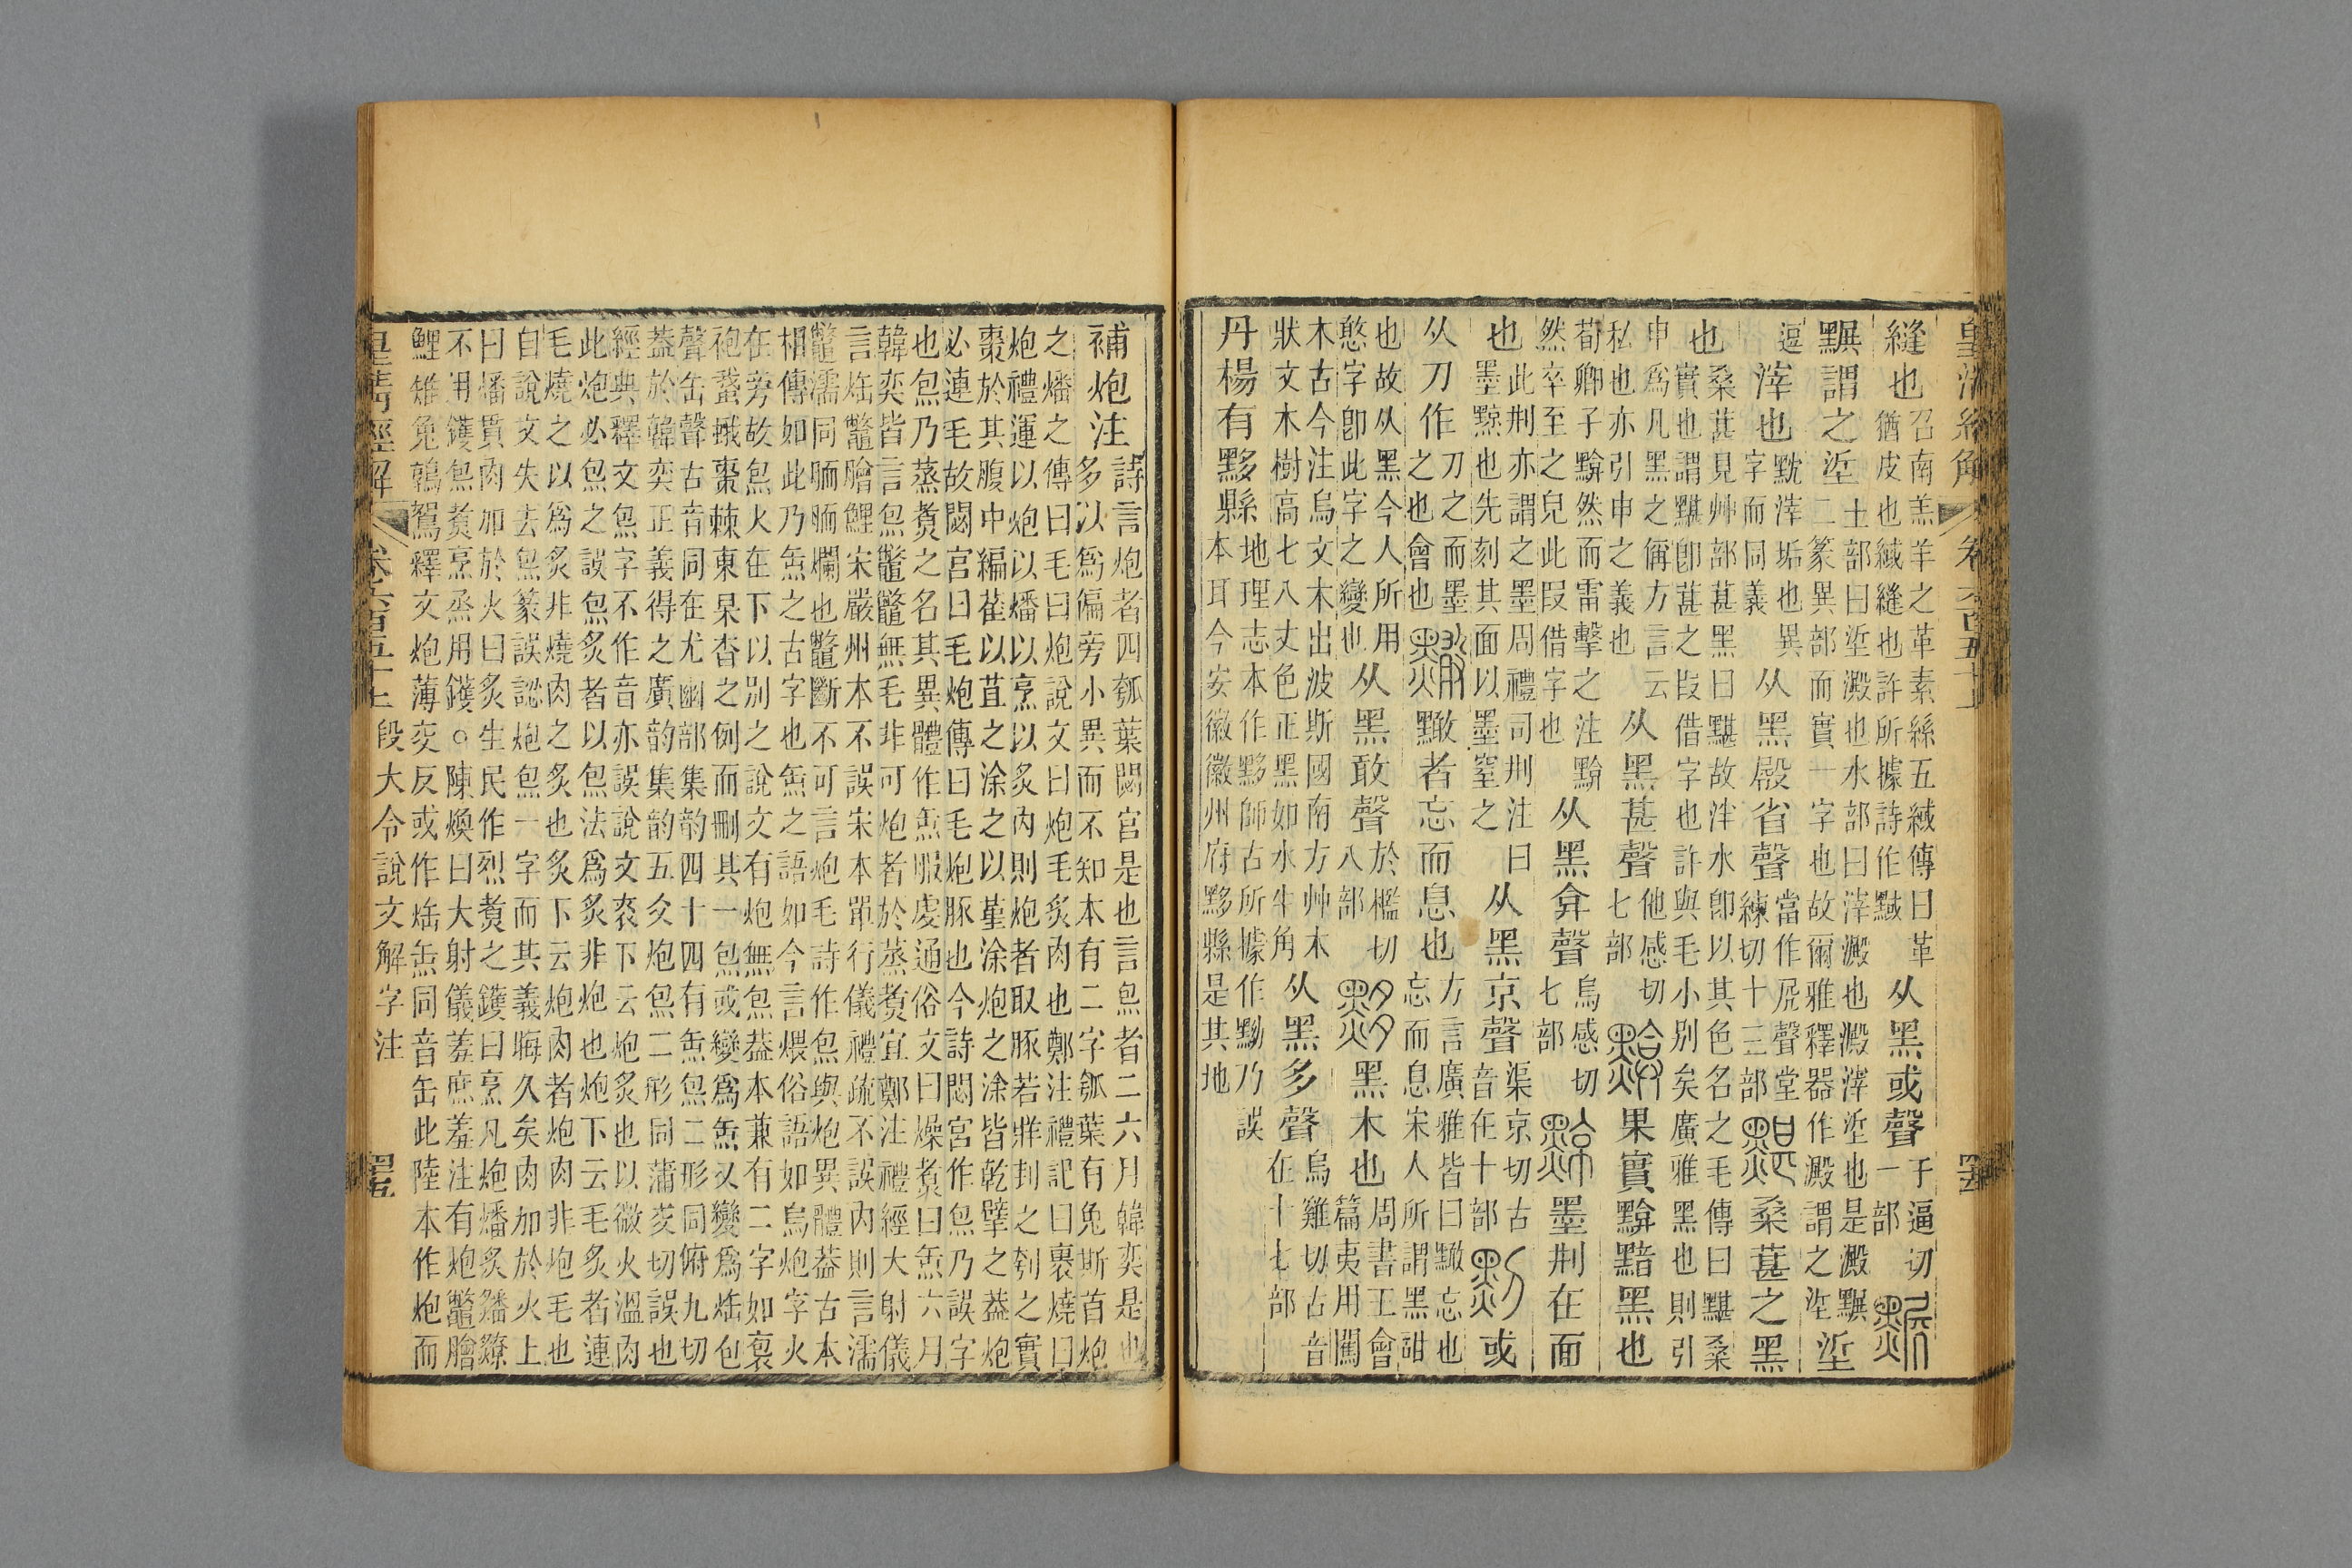 皇清經解 卷六百五十上
縫也召南羔羊之革素絲五緎傳曰革
猶皮也緎縫也許所據詩作䵧从黑或聲于逼切
一部
黰謂之垽土部曰垽澱也水部曰滓澱也澱滓垽也是澱黰垽
二篆異部而實一字也故爾雅釋器作澱謂之垽
滓也黕滓垢也異
字而同義从黑殿省聲當作𡱂聲堂
練切十三部桑葚之黑
也桑葚見艸部葚黑曰黮故泮水卽以其色名之毛傳曰黮桑
實也謂黮卽葚之叚借字也許與毛小別矣廣雅黑也則引
申爲凡黑之偁方言云
私也亦引申之義也从黑甚聲他感切
七部果實黭黯黑也
荀卿子黭然而雷擊之注黭
然卒至之皃此叚借字也从黑弇聲烏感切
七部墨刑在面
也此刑亦謂之墨周禮司刑注曰
墨黥也先刻其面以墨窒之从黑京聲渠京切古
音在十部或
从刀作刀之而墨
之也會也黵者忘而息也方言廣雅皆曰黵忘也
忘而息宋人所謂黑甜
也故从黑今人所用
憨字卽此字之變也从黑敢聲於檻切
八部黑木也周書王會
篇夷用闟
木古今注烏文木出波斯國南方艸木
狀文木樹高七八丈色正黑如水牛角从黑多聲烏雞切古音
在十七部
丹楊有黟縣地理志本作黟師古所據作黝乃誤
本耳今安徽徽州府黟縣是其地
補炮注詩言炮者四瓠葉閟宮是也言炰者二六月韓奕是也
多以爲偏旁小異而不知本有二字瓠葉有兔斯首炮
之燔之傳曰毛曰炮說文曰炮毛炙肉也鄭注禮記曰裹燒曰
炮禮運以炮以燔以烹以炙內則炮者取豚若牂刲之刳之實
棗於其腹中編萑以苴之涂之以堇涂炮之涂皆乾擘之葢炮
必連毛故閟宮曰毛炮傳曰毛炮豚也今詩閟宮作炰乃誤字
也炰乃蒸煑之名其異體作缹服虔通俗文曰燥煑曰缹六月
韓奕皆言炰鼈鼈無毛非可炮者於蒸煑宜鄭注禮經大射儀
言炰鼈膾鯉宋嚴州本不誤宋本單行儀禮疏不誤內則言濡
鼈濡同胹胹爛也鼈斷不可言炮毛詩作炰與炮異體葢古本
相傳如此乃缹之古字也缹之語如今言煨俗語如烏炮字火
在旁故炰火在下以別之說文有炮無炰葢本兼有二字如裒
袍蜚蛾棗棘東杲杳之例而刪其一炰或變爲缹又變爲炰包
聲缶聲古音同在尤幽部集韵四十四有缹炰二形同俯九切
葢於韓奕正義得之廣韵集韵五爻炮炰二形同蒲交切誤也
經典釋文炰字不作音亦誤說文衮下云炮炙也以微火溫肉
此炮必炰之誤炰炙者以炰法爲炙非炮也炮下云毛炙者連
毛燒之以爲炙非燒肉之炙也炙下云炮肉者炮肉非炮毛也
自說文失去炰篆誤認炮炰一字而其義晦久矣肉加於火上
曰燔貫肉加於火曰炙生民作烈煑之鑊曰烹凡炮燔炙鐇鐐
不用鑊炰煑烹烝用鑊○陳煥曰大射儀羞庶羞注有炮鼈膾
鯉雉兔鶉鴽釋文炮薄交反或作炰缹同音缶此陸本作炮而
皇清經解 卷六百五十上 段大令說文解字注